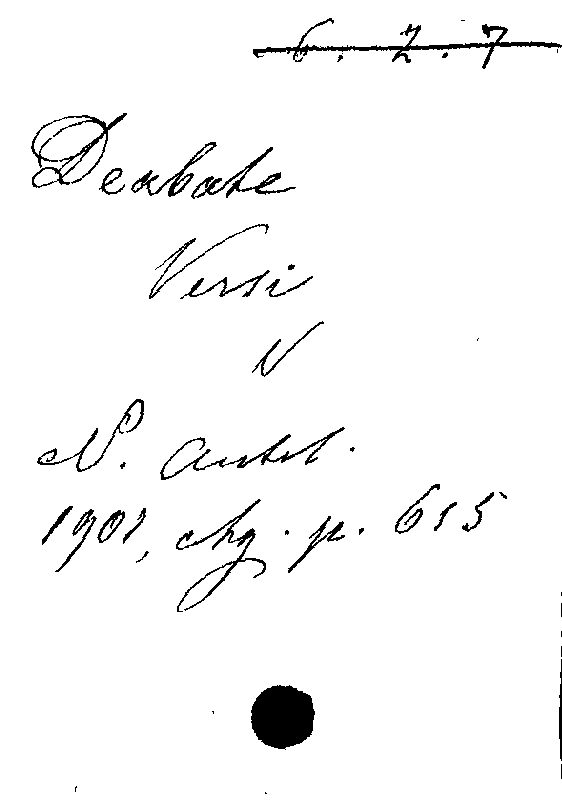 6. 2. 7
Deabate
Versi
V
N. Antol.
1901, Ag. p. 615